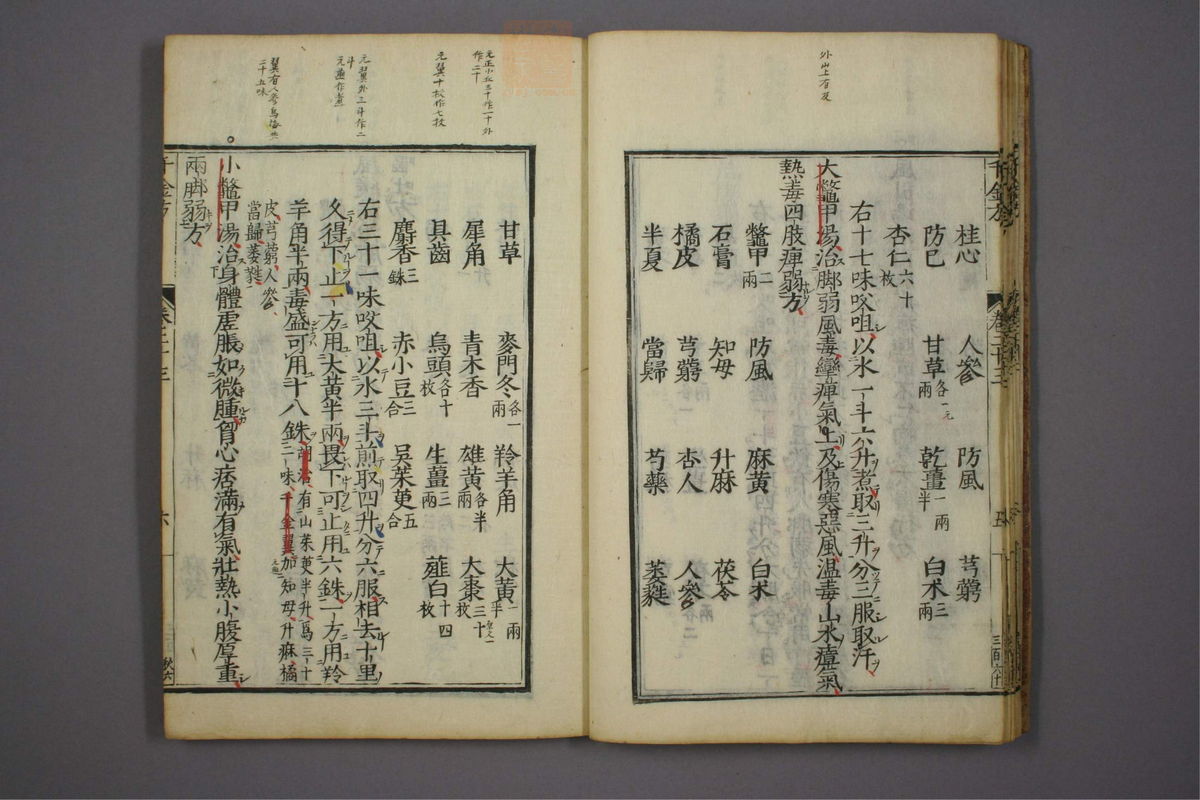 外山上有及
桂心 人參 防風 芎藭
防巳 甘草各一兩 乾薑一兩半 白术三兩
杏仁六十枚
右十七味㕮咀以水一斗六升煮取三升分三服取汗
大鼈甲湯治脚弱風毒攣痺氣上及傷寒惡風溫毒山水瘴氣
熱毒四肢痺弱方
鼈甲二兩 防風 麻黃 白术
石膏 知母 升麻 茯苓
橘皮 芎藭 杏人 人參
半夏 當歸 芍藥 萎蕤
元正小丘三十作一十外
作二十
元翼十枚作七枚
元翼外三斗作二
斗
翼有人參烏梅共
二十五味
甘草 麥門冬各一兩 羚羊角 大黃一兩半
犀角 青木香 雄黃各半兩 大棗三十枚
貝齒 烏頭各十枚 生薑三兩 薤白十四枚
麝香三銖 赤小豆三合 吳茱萸五合
右三十一味㕮咀以水三斗煎取四升分六服相去十里
久得下止一方用大黃半兩畏下可止用六銖一方用羚
羊角半兩毒盛可用十八銖胡洽有山茱萸半升爲三十二味千金翼加知母升麻橘
皮芎藭人參當歸萎蕤
小鼈甲湯治身體虛脹如微腫胷心痞滿有氣壯熱小腹厚重
兩脚弱方
千金方
卷二十三
六